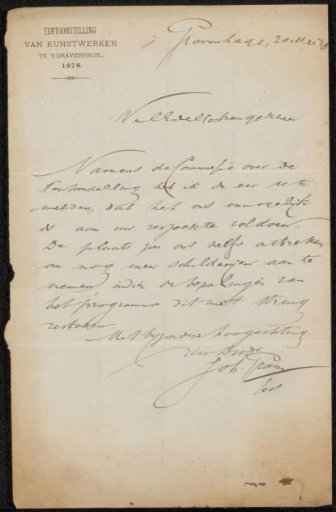 TENTOONSTELLING
VAN KUNSTWERKEN
TE 'S GRAVENHAGE,
1878.
's Gravenhage, 20 Mei 78
WelEdelGestrenge Heer
Namens de Commissie over de
Tentoonstelling heb ik de eer u te
melden, dat het ons onmogelijk
is aan uw verzoek te voldoen.
De plaats zou ons zelfs ontbreken
om nog meer schilderijen aan te
nemen, indien de bepalingen van
het programma dit niet streng
verboden.
Met bijzondere hoogachting
Uw
Joh. Gram